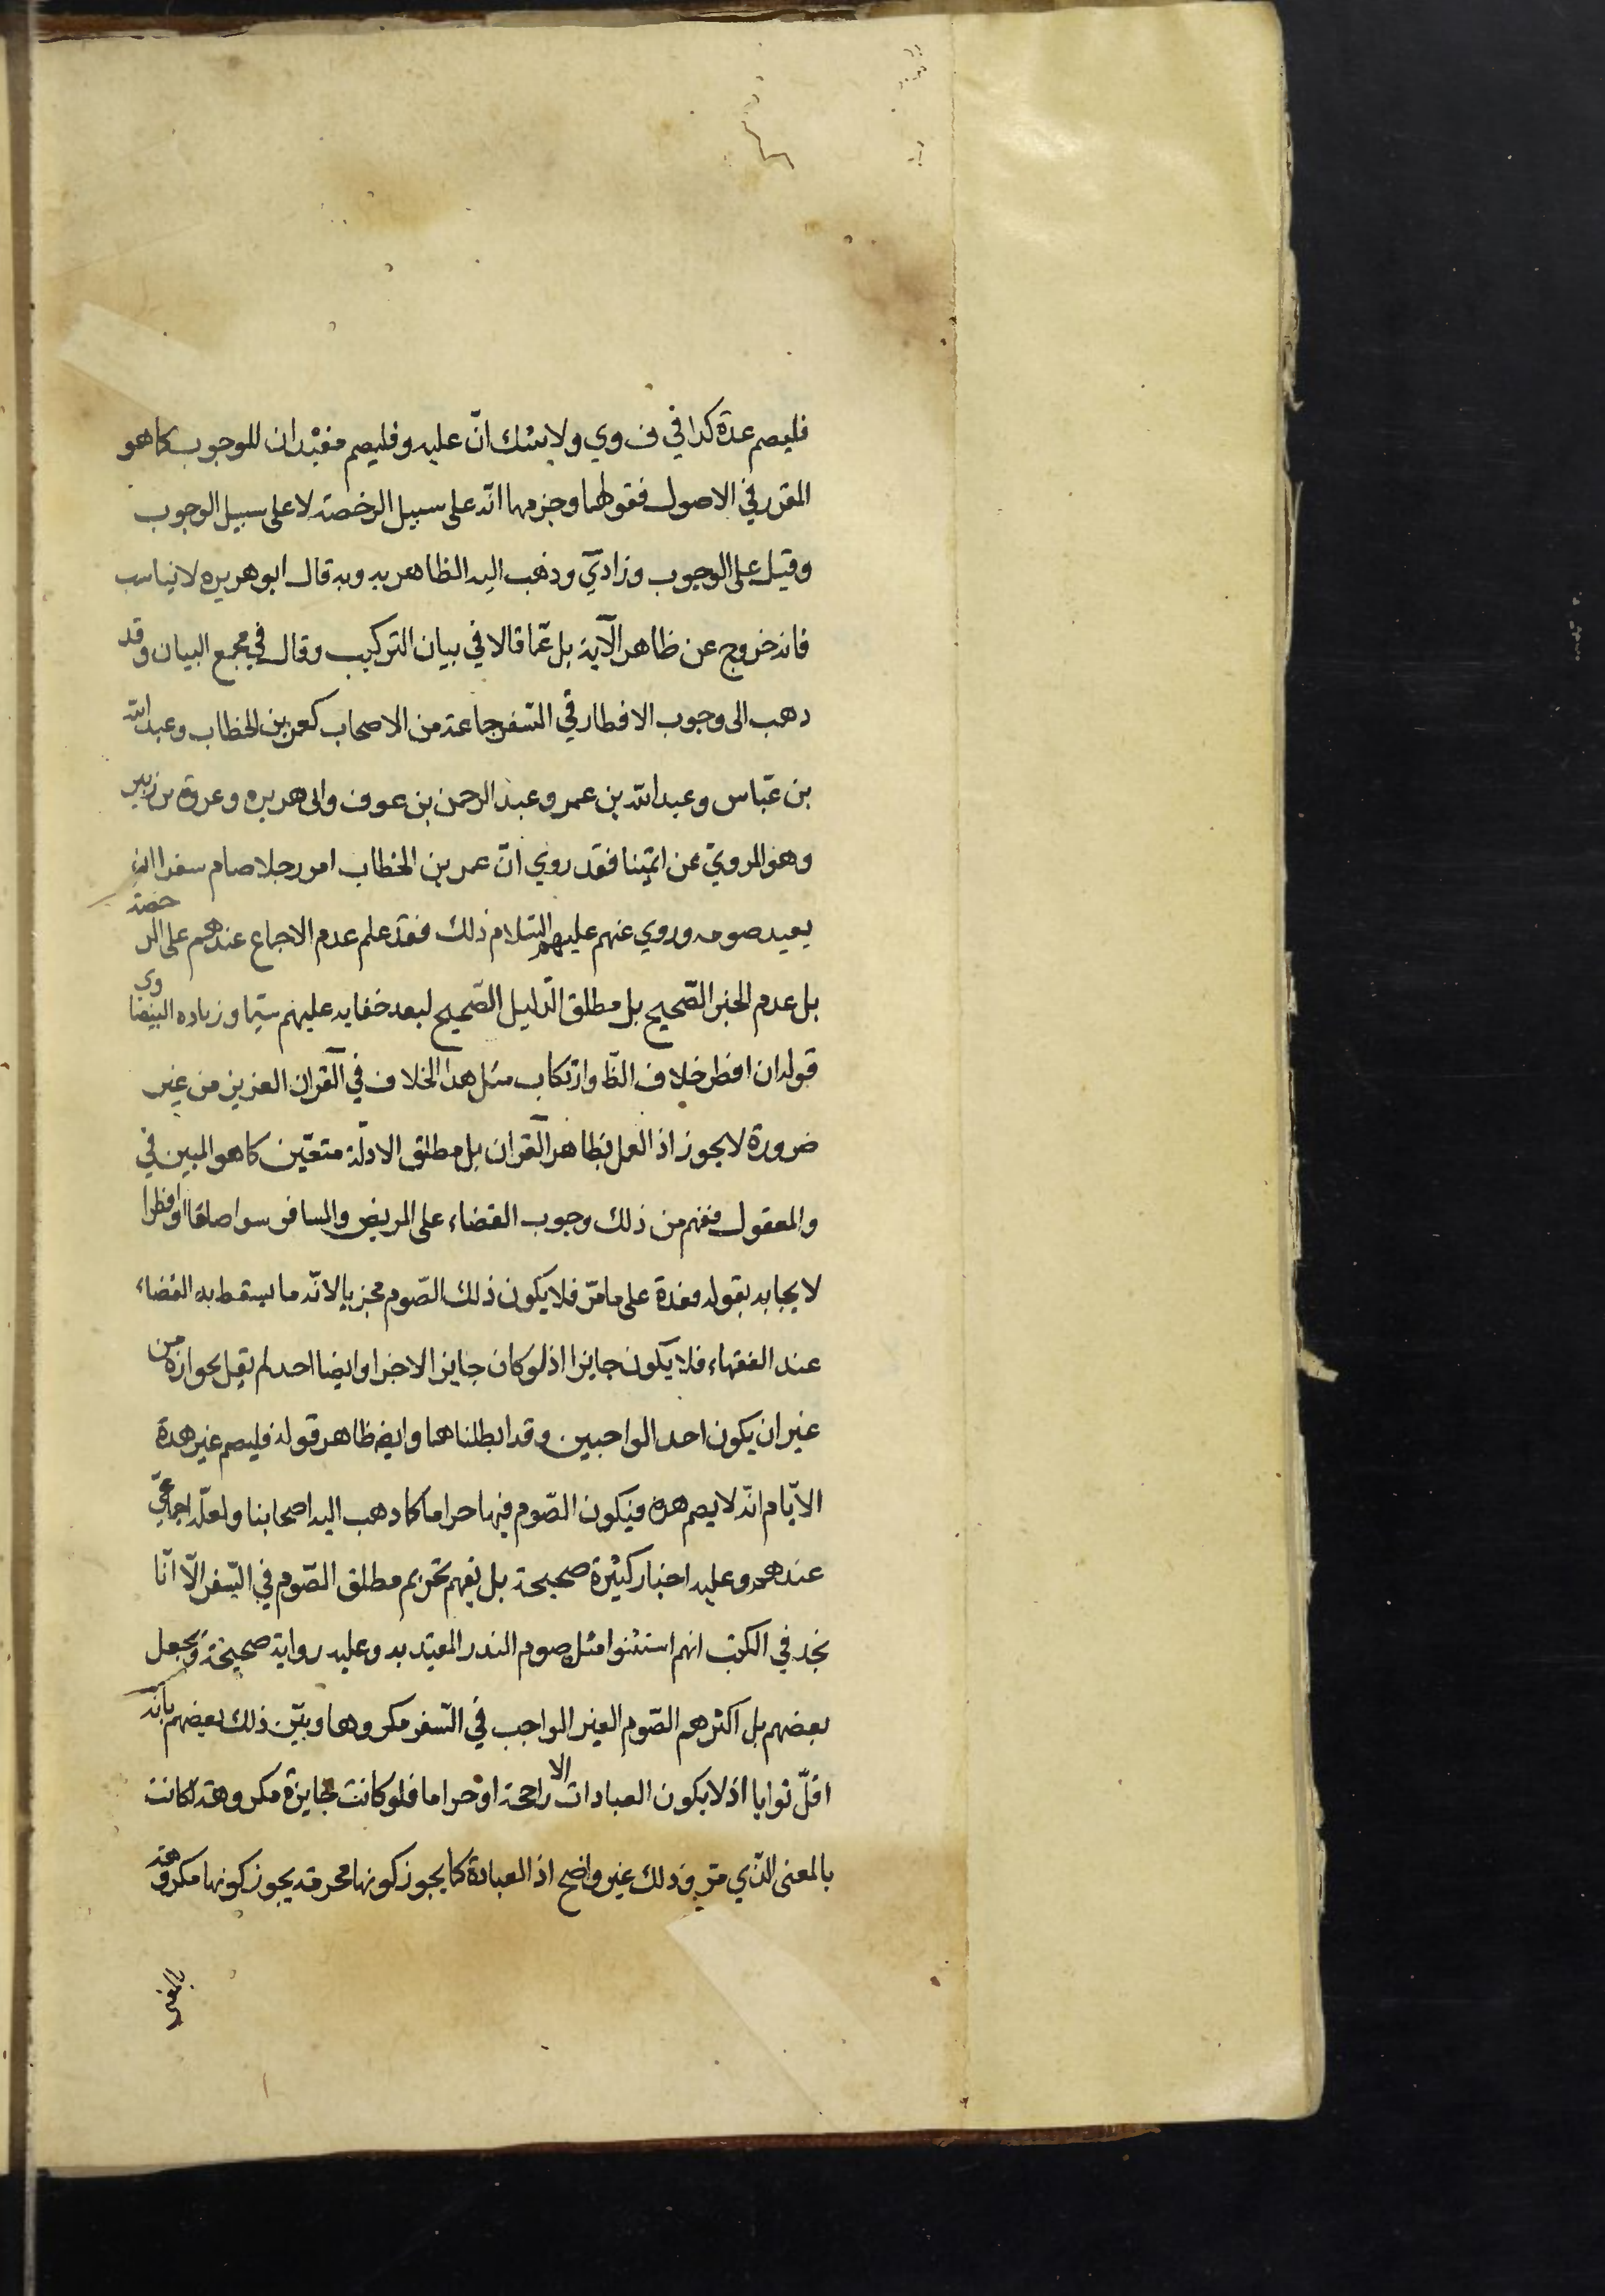 فليصم عدة كذا في ف وي ولا شك انّ عليه وفليصم مفيدان للوجوب كما هو
المقرر في الاصول فقولهما وجزمهما انّه على سبيل الرخصة لا على سبيل الوجوب
وقيل على الوجوب وزاد يّ وذهب اليه الظاهريه وبه قال ابو هريره لا يناسب
فانه خروج عن ظاهر الآية بل عمّا قالا في بيان التركيب وقال في مجمع البيان وقد
ذهب الى وجوب الافطار في السّفر جماعة من الاصحاب كعمر بن الخطاب وعبد الله
بن عبّاس وعبد الله بن عمر وعبد الرحمن بن عوف وابى هريره وعروة بن زبير
وهو المرويّ عن ائمّتنا فقد روي انّ عمر بن الخطاب امر رجلا صام سفرا ان
يعيد صومه وروي عنهم عليهم السّلام ذلك فقد علم عدم الاجماع عندهم على الرخصة
بل عدم الخبر الصّحيح بل مطلق الدّليل الصّحيح لبعد خفايه عليهم سيّما وزياده البيضاوى
قوله ان افطر خلاف الظّ وارتكاب مثل هذا الخلاف في القرآن العزيز من غير
ضرورة لا يجوز اذ العمل بظاهر القرآن بل مطلق الادلّة متعيّن كما هو المبين في
والمعقول ففهم من ذلك وجوب القضاء على المريض والمسافر سوا صاما او افطرا
لايجابه بقوله فعدة على ما مرّ فلا يكون ذلك الصّوم مجزيا لانّه ما يسقط به القضاء
عند الفقهاء فلا يكون جايزا اذ لو كان جايزا لاجزا وايضا احد لم يقل بجوازه من
غير ان يكون احد الواجبين وقد ابطلناهما وايضا ظاهر قوله فليصم غير هذة
الايّام انّه لا يصم هذه فيكون الصّوم فيها حراما كما ذهب اليه اصحابنا ولعلّه اجماعيّ
عندهم وعليه اخبار كثيرة صحيحة بل يفهم تحريم مطلق الصّوم في السّفر الّا انّا
نجد في الكتب انهم استثنوا مثل صوم النذر المقيّد به وعليه رواية صحيحة وبجعل
بعضهم بل اكثرهم الصّوم الغير الواجب في السّفر مكروها وبيّن ذلك بعضهم بانّه
اقلّ ثوابا اذ لا يكون العبادات الا راجحة او حراما فلو كانت جايزة مكروهة لكانت
بالمعنى الذّي مرّ وذلك غير واضح اذ العبادة كما يجوز كونها محرمة يجوز كونها مكروهة
بالمعنى